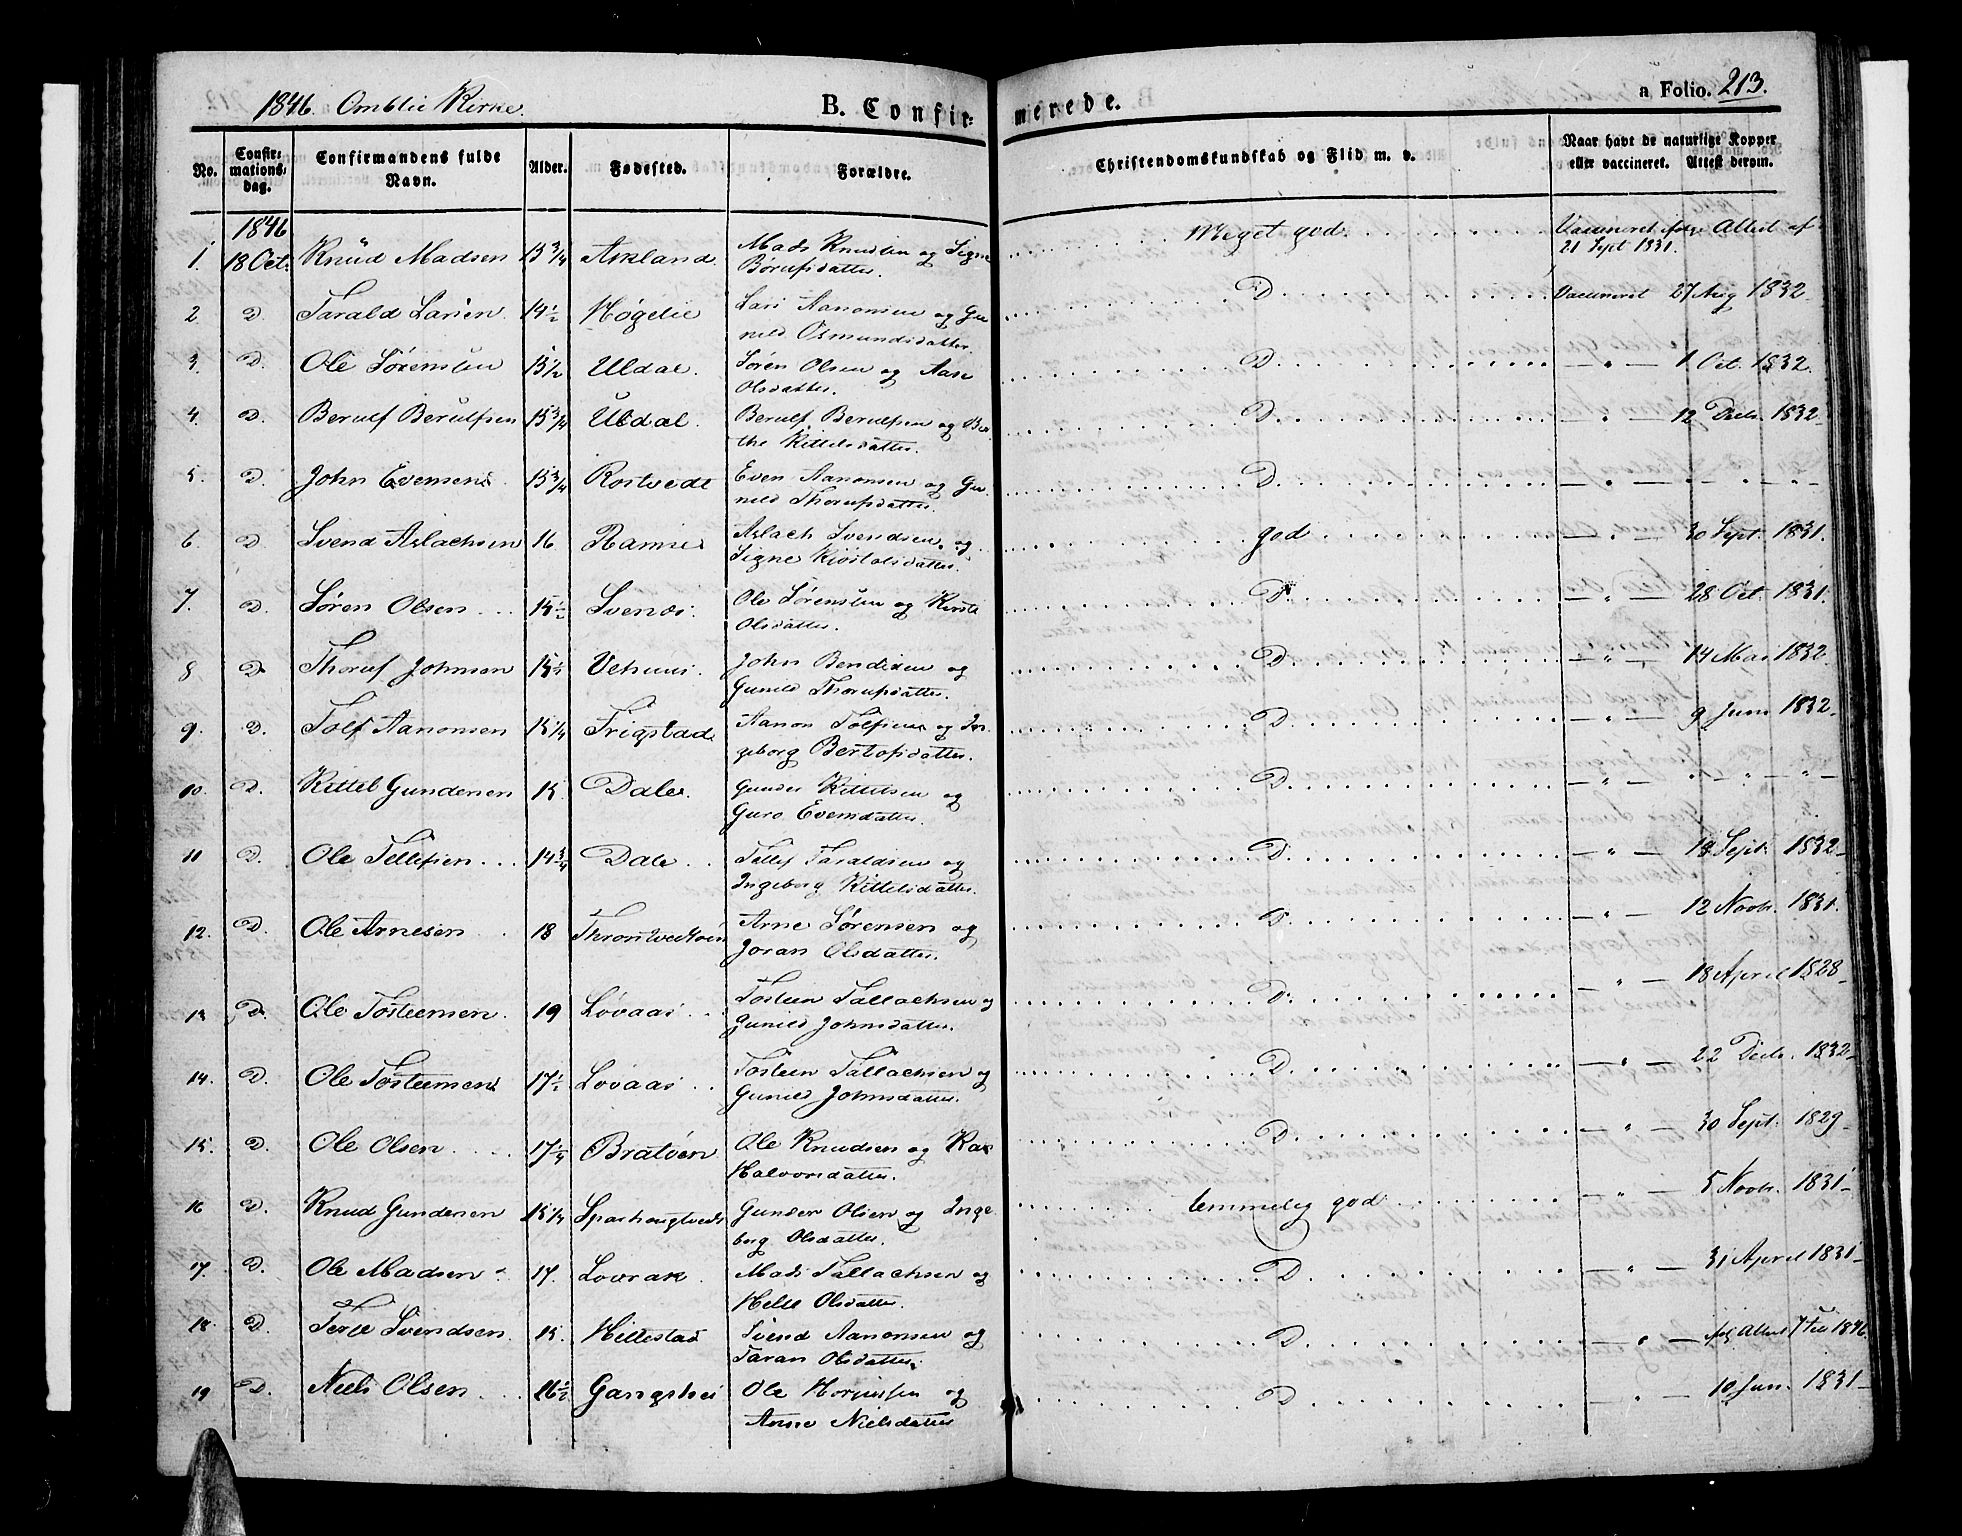 1846. Omblie Kirke.
B. Confirmerede.
a Folio. 213.
No. Confirmationsdag. Confirmandens fulde Navn. Alder. Fødested. Forældre. Christendomskundskab og Flid m. v. Naar havt de naturlige Kopper eller vaccineret. Attest derom.
1846
1. 18 Oct. Knud Madsen 15 3/4 Askland Mads Knudsen og Signe Meget god Vaccineret følge Attest af
Børufsdatter. 21 Sept 1831.
2. D. Tarald Larsen 14 1/2 Høgelie Lars Aanonsen og Gu D Vaccineret 27 Aug 1832
nild Osmundsdatter.
3. D. Ole Sørensen 15 1/2 Uldal. Søren Olsen og Aase D — " — 1 Oct. 1832.
Olsdatter.
4. D. Berulf Berulfsen 15 3/4 Uldal. Berulf Berulfsen og Ber D. — " — 12 Decbr. 1832
the Kittelsdatter.
5. D. John Evensen 15 3/4 Rostvedt Even Aanonsen og Gu D — " — " — " —
nild Thorufsdatter.
6. D Svend Aslachsen 16 Ramse Aslach Svendsen og god — " — 30 Sept. 1831.
Signe Kjöstolsdatter.
7. D. Søren Olsen 15 1/2 Svenos. Ole Sørensen og Kirsti D — " — 28 Oct. 1831.
Olsdatter.
8 D Thoruf Johnsen 15 1/2 Vehuus. John Bendixen og D — " — 14 Mai 1832
Gunild Thorufsdatter.
9. D. Tolf Aanonsen 15 1/4 Frigstad Aanon Tolfsen og In D — " — 9 Juni 1832
geborg Bertofsdatter.
10. D. Kittel Gundersen 15. Dale. Gunder Kittelsen og D — " — " — " —
Guro Evensdatter.
11 D. Ole Tellefsen 14 3/4 Dale Tellef Taraldsen og D — " — 18 Sept. 1832
Ingeborg Kittelsdatter.
12. D. Ole Arnesen 18 Arne Sørensen og D — " — 12 Novbr. 1831.
Joran Olsdatter.
13. D. Ole Tosteensen. 19 Lovaas Tosteen Tallachsen og D. — " — 18 April 1828
Gunild Johnsdatter.
14. D. Ole Tosteensen 17 1/2 Lovaas Tosteen Tallachsen og D — " — 22 Decbr. 1832
Gunild Johnsdatter.
15. D. Ole Olsen 17 1/4 Bratøen Ole Knudsen og D — " — 30 Sept. 1829
Halvorsdatter.
16 D. Knud Gundersen 15 1/4 Gunder Olsen og Inge temmelig god — " — 5 Novbr. 1831
borg Olsdatter.
17. D. Ole Madsen 17. Lovrak Mads Tallachsen og D — " — 31 April 1831
Helle Olsdatter.
18. D. Terje Svendsen 15. Hillestad Svend Aanonsen og D — " — Attest 7 1846
Taran Olsdatter.
19 D. Niels Olsen 16 1/2 Gangshei Ole og D " — 10 Jun. 1831
Anne Nielsdatter